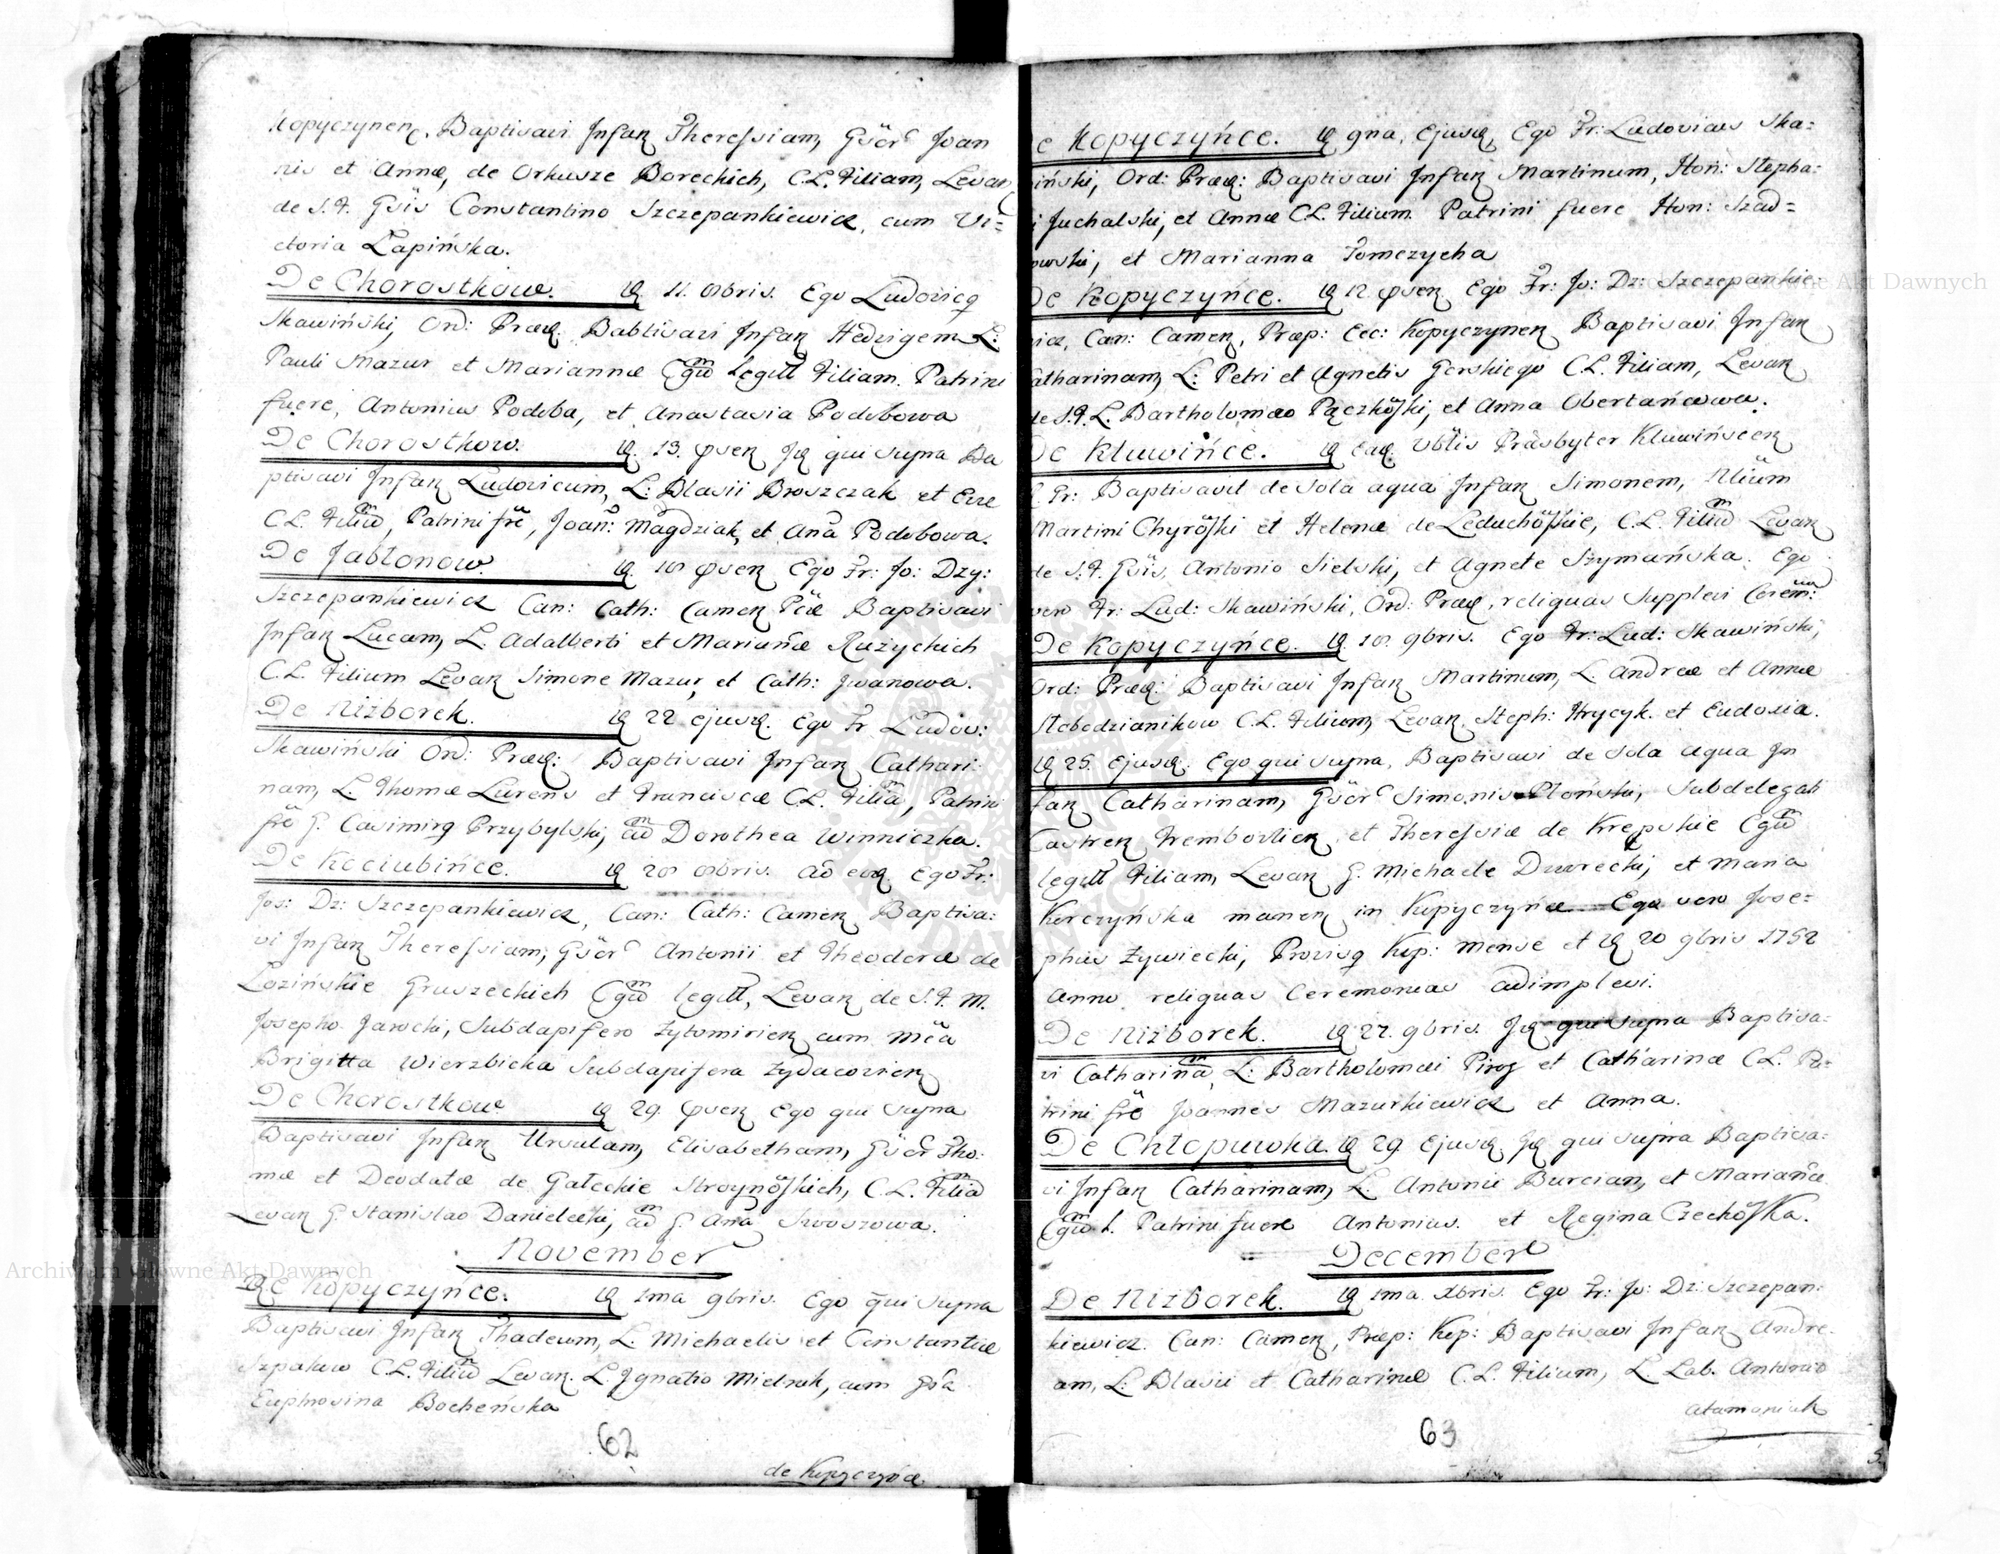 Kopyczynen, Baptisavi Infan Theressiam, Gsör Joan
nis et Annæ, de Orkusze Boreckich, C.L. Filiam, Levan
de S.F. Gsis Constantino Szczepankiewicz, cum Vi=
ctoria Łapińska.
De Chorostkow. 11. 8bris. Ego Ludovicq
Skawiński, Ord: Præd. Babtisavi Infan Hedvigem L:
Pauli Mazur et Mariannæ Cgũ legitt Filiam. Patrini
fuere, Antonius Podoba, et Anastasia Podobowa
De Chorostkow. 13. præsen Id qui supra Ba
ptisavi Infan Ludovicum, L: Blasii Broszczak et Evæ
C.L. Filiũ, Patrini frẽ, Joan: Magdziak, et Aña Podobowa.
De Jabłonow. 18 præsen Ego Fr: Jo: Dzy:
Szczepankiewicz Can: Cath: Camen Baptisavi
Infan Lucam, L. Adalberti et Mariañæ Rużyckich
C.L. Filium Levan Simone Mazur, et Cath: Iwanowa.
De Niżborek. 22 ejusd. Ego Fr Ludov:
Skawiński Ord: Præd: Baptisavi Infan Cathari-
nam, L. Thomæ Lurens et Franciscæ C.L. Filiã, Patrini
frẽ G. Casimirq Przybylski, Dorothea Winniczka.
De Kociubińce. 28 8bris. Ego Fr:
Jos: Dz: Szczepankiewicz, Can: Cath: Camen Baptisa:
vi Infan Theressiam, Gsör Antonii et Theodoræ de
Łozińskie Gruszeckich Cgũ legitt, Levan de S.F. M.
Josepho Jarocki, Subdapifero Żytomirien cum Mcã
Brigitta Wierzbicka Subdapifera Żydacovien
De Chorostkow 29. præsen Ego qui supra
Baptisavi Infan Ursulam, Elisabetham, Gsör Tho-
mæ et Deodatæ de Gałeckie Stroynoſkich, C.L. Filiã
Levan G. Stanislao Danielecki, G. Aña Swoszowa.
November
De Kopyczyńce. 1ma 9bris. Ego qui supra
Baptisavi Infan Thadeum, L. Michaelis et Constantiæ
Szpakow C.L. Filiũ Levan. L. Ignatio Mielnik, cum Gsa
Euphrosina Bocheńska
62
de Kopyczyńce
e Kopyczyńce. 9na, Ejusd, Ego Fr: Ludovicus Ska:
iński, Ord: Præd: Baptisavi Infan Martinum, Hon: Stepha:
i Juchalski, et Annæ C.L. Filium. Patrini fuere Hon: Szad=
owski, et Marianna Tomczycha
De Kopyczyńce. 12. præsen Ego Fr: Jo: Dz: Szczepankie:
icz, Can: Camen, Præp: Ecc: Kopyczynen Baptisavi Infan
Catharinam, L: Petri et Agnetis Gorskiego C.L. Filiam, Levan
de S.F. L. Bartholomæo Pączkoſki, et Anna Obertańcowa.
De Kluwińce. Ead. Presbyter Kluwińscen
Gr: Baptisavit de sola aqua Infan Simonem, filium
Martini Chyroſki et Helenæ de Leduchoſkie, C.L. Filiũ Levan
de S.F. Gsis, Antonio Sielski, et Agnete Szymańska. Ego
vero Fr: Lud: Skawiński, Ord: Præd, reliquas supplevi Cerem:
De Kopyczyńce. 18. 9bris. Ego Fr: Lud: Skawiński,
Ord: Præd: Baptisavi Infan Martinum, L. Andreæ et Annæ
Slobodzianikow C.L. Filium, Levan, Steph: Hrycyk. et Eudosia.
25. Ejusd. Ego qui supra, Baptisavi de sola aqua In
fan Catharinam, Gsör Simonis Płoński, Subdelegati
Castren Trembovlien et Theressiæ de Krępskie Cgũ
legitt Filiam, Levan G. Michaele Dworecki, et Maria
Korczyńska manen in Kopyczyńce Ego vero Jose=
phus Żywiecki, Provisq Kop: Mense et 20 9bris 1752
Anno reliquas Ceremonias adimplevi.
De Niżborek. 27. 9bris. Id qui supra Baptisa:
vi Catharinã, L: Bartholomæi Pirog et Catharinæ C.L. Pa=
trini frẽ Joannes Mazurkiewicz et Anna.
De Chłopuwka. 29. Ejusd. Id qui supra Baptisa:
vi Infan Catharinam, L. Antonii Burcian, et Mariañæ
Cgũ L. Patrini fuere Antonius. et Regina Czechoſka.
December
De Niżborek. 1ma. Xbris. Ego Fr: Jo: Dz: Szczepan:
kiewicz. Can: Camen, Præp: Kop: Baptisavi Infan Andre-
am, L: Blasii et Catharinæ C.L. Filium, L. Lab. Antonio
Atamaniuk
63